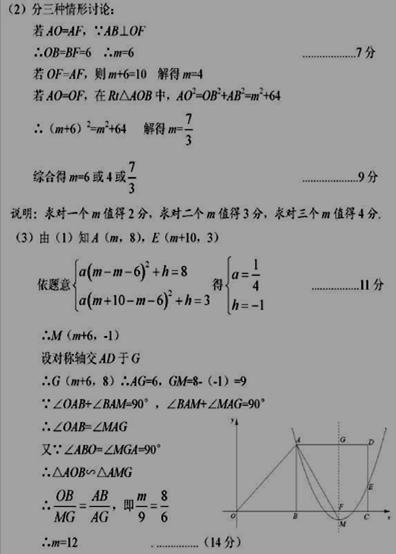 (2)分三种情形讨论:
若AO=AF,∵AB⊥OF
∴OB=BF=6 ∴m=6 ....................7分
若OF=AF,则m+6=10 解得m=4
若AO=OF,在Rt△AOB中,AO²=OB²+AB²=m²+64
∴(m+6)²=m²+64 解得m=7/3
综合得m=6或4或7/3 ....................9分
说明:求对一个m值得2分,求对二个m值得3分,求对三个m值得4分.
(3)由(1)知A(m,8),E(m+10,3)
依题意{a(m-m-6)²+h=8 得{a=1/4 ..............11分
a(m+10-m-6)²+h=3 h=-1
∴M(m+6,-1)
设对称轴交AD于G
∴G(m+6,8)∴AG=6,GM=8-(-1)=9
∵∠OAB+∠BAM=90°,∠BAM+∠MAG=90°
∴∠OAB=∠MAG
又∵∠ABO=∠MGA=90°
∴△AOB∽△AMG
∴OB/MG=AB/AG,即m/9=8/6
∴m=12 ..............(14分)
y
A G D
E
O B F C x
M